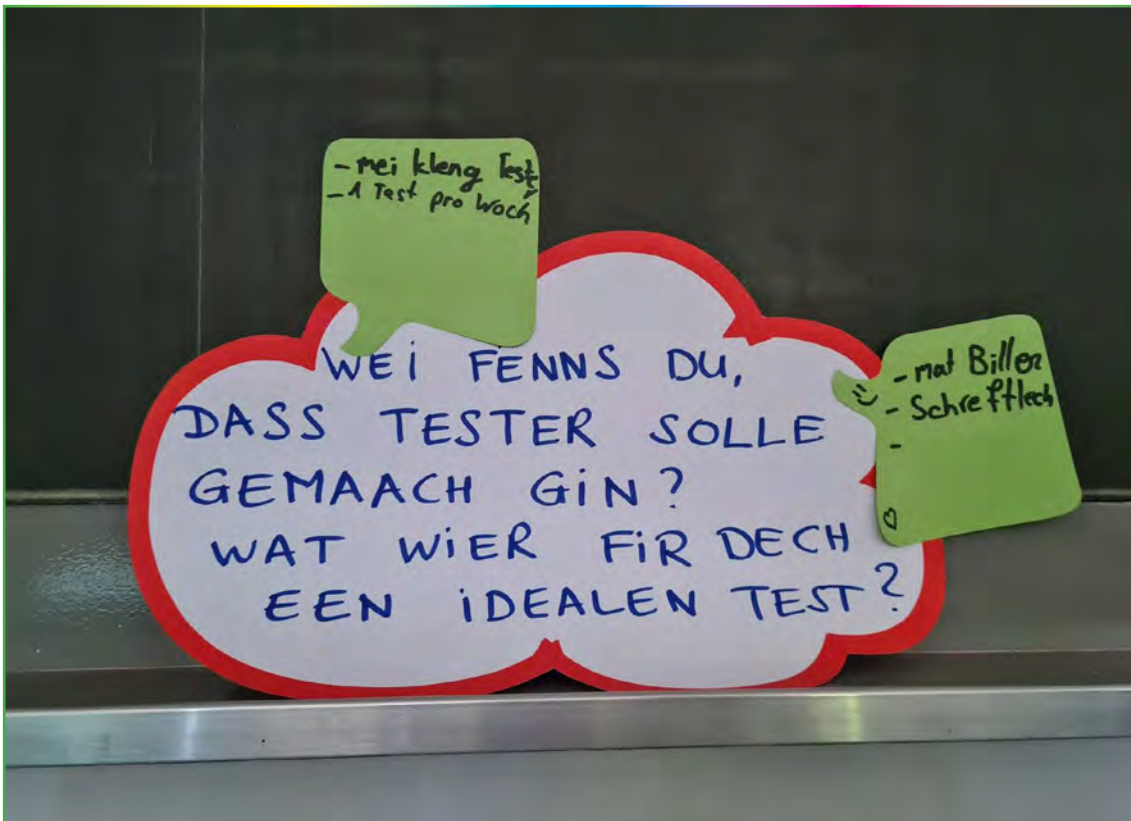 - mei kleng Test
- 1 Test pro Woch
WEI FENNS DU,
DASS TESTER SOLLE
GEMAACH GIN?
WAT WIER FIR DECH
EEN IDEALEN TEST?
- mat Biller
- Schreftlech
-